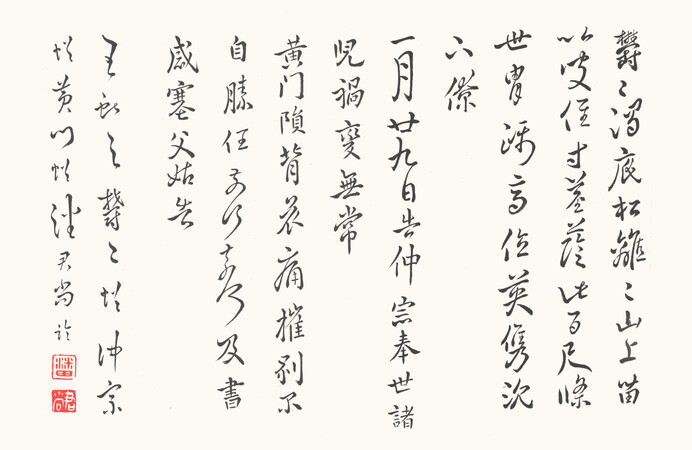 鬱〻澗底松離〻山上苗
以彼徑寸莖蔭此百尺條
世胄躡高位英雋沈
下僚
一月廿九日告仲宗奉世諸
児禍變無常
黃门隕背哀痛摧剝不
自勝任奈何奈何及書
感塞父姑告
王之鬱〻帖仲宗
帖黄门帖君尚
君尚